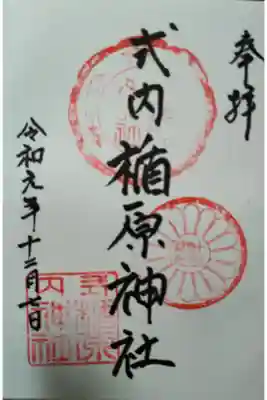 奉拝
式内楯原神社
令和元年十二月七日